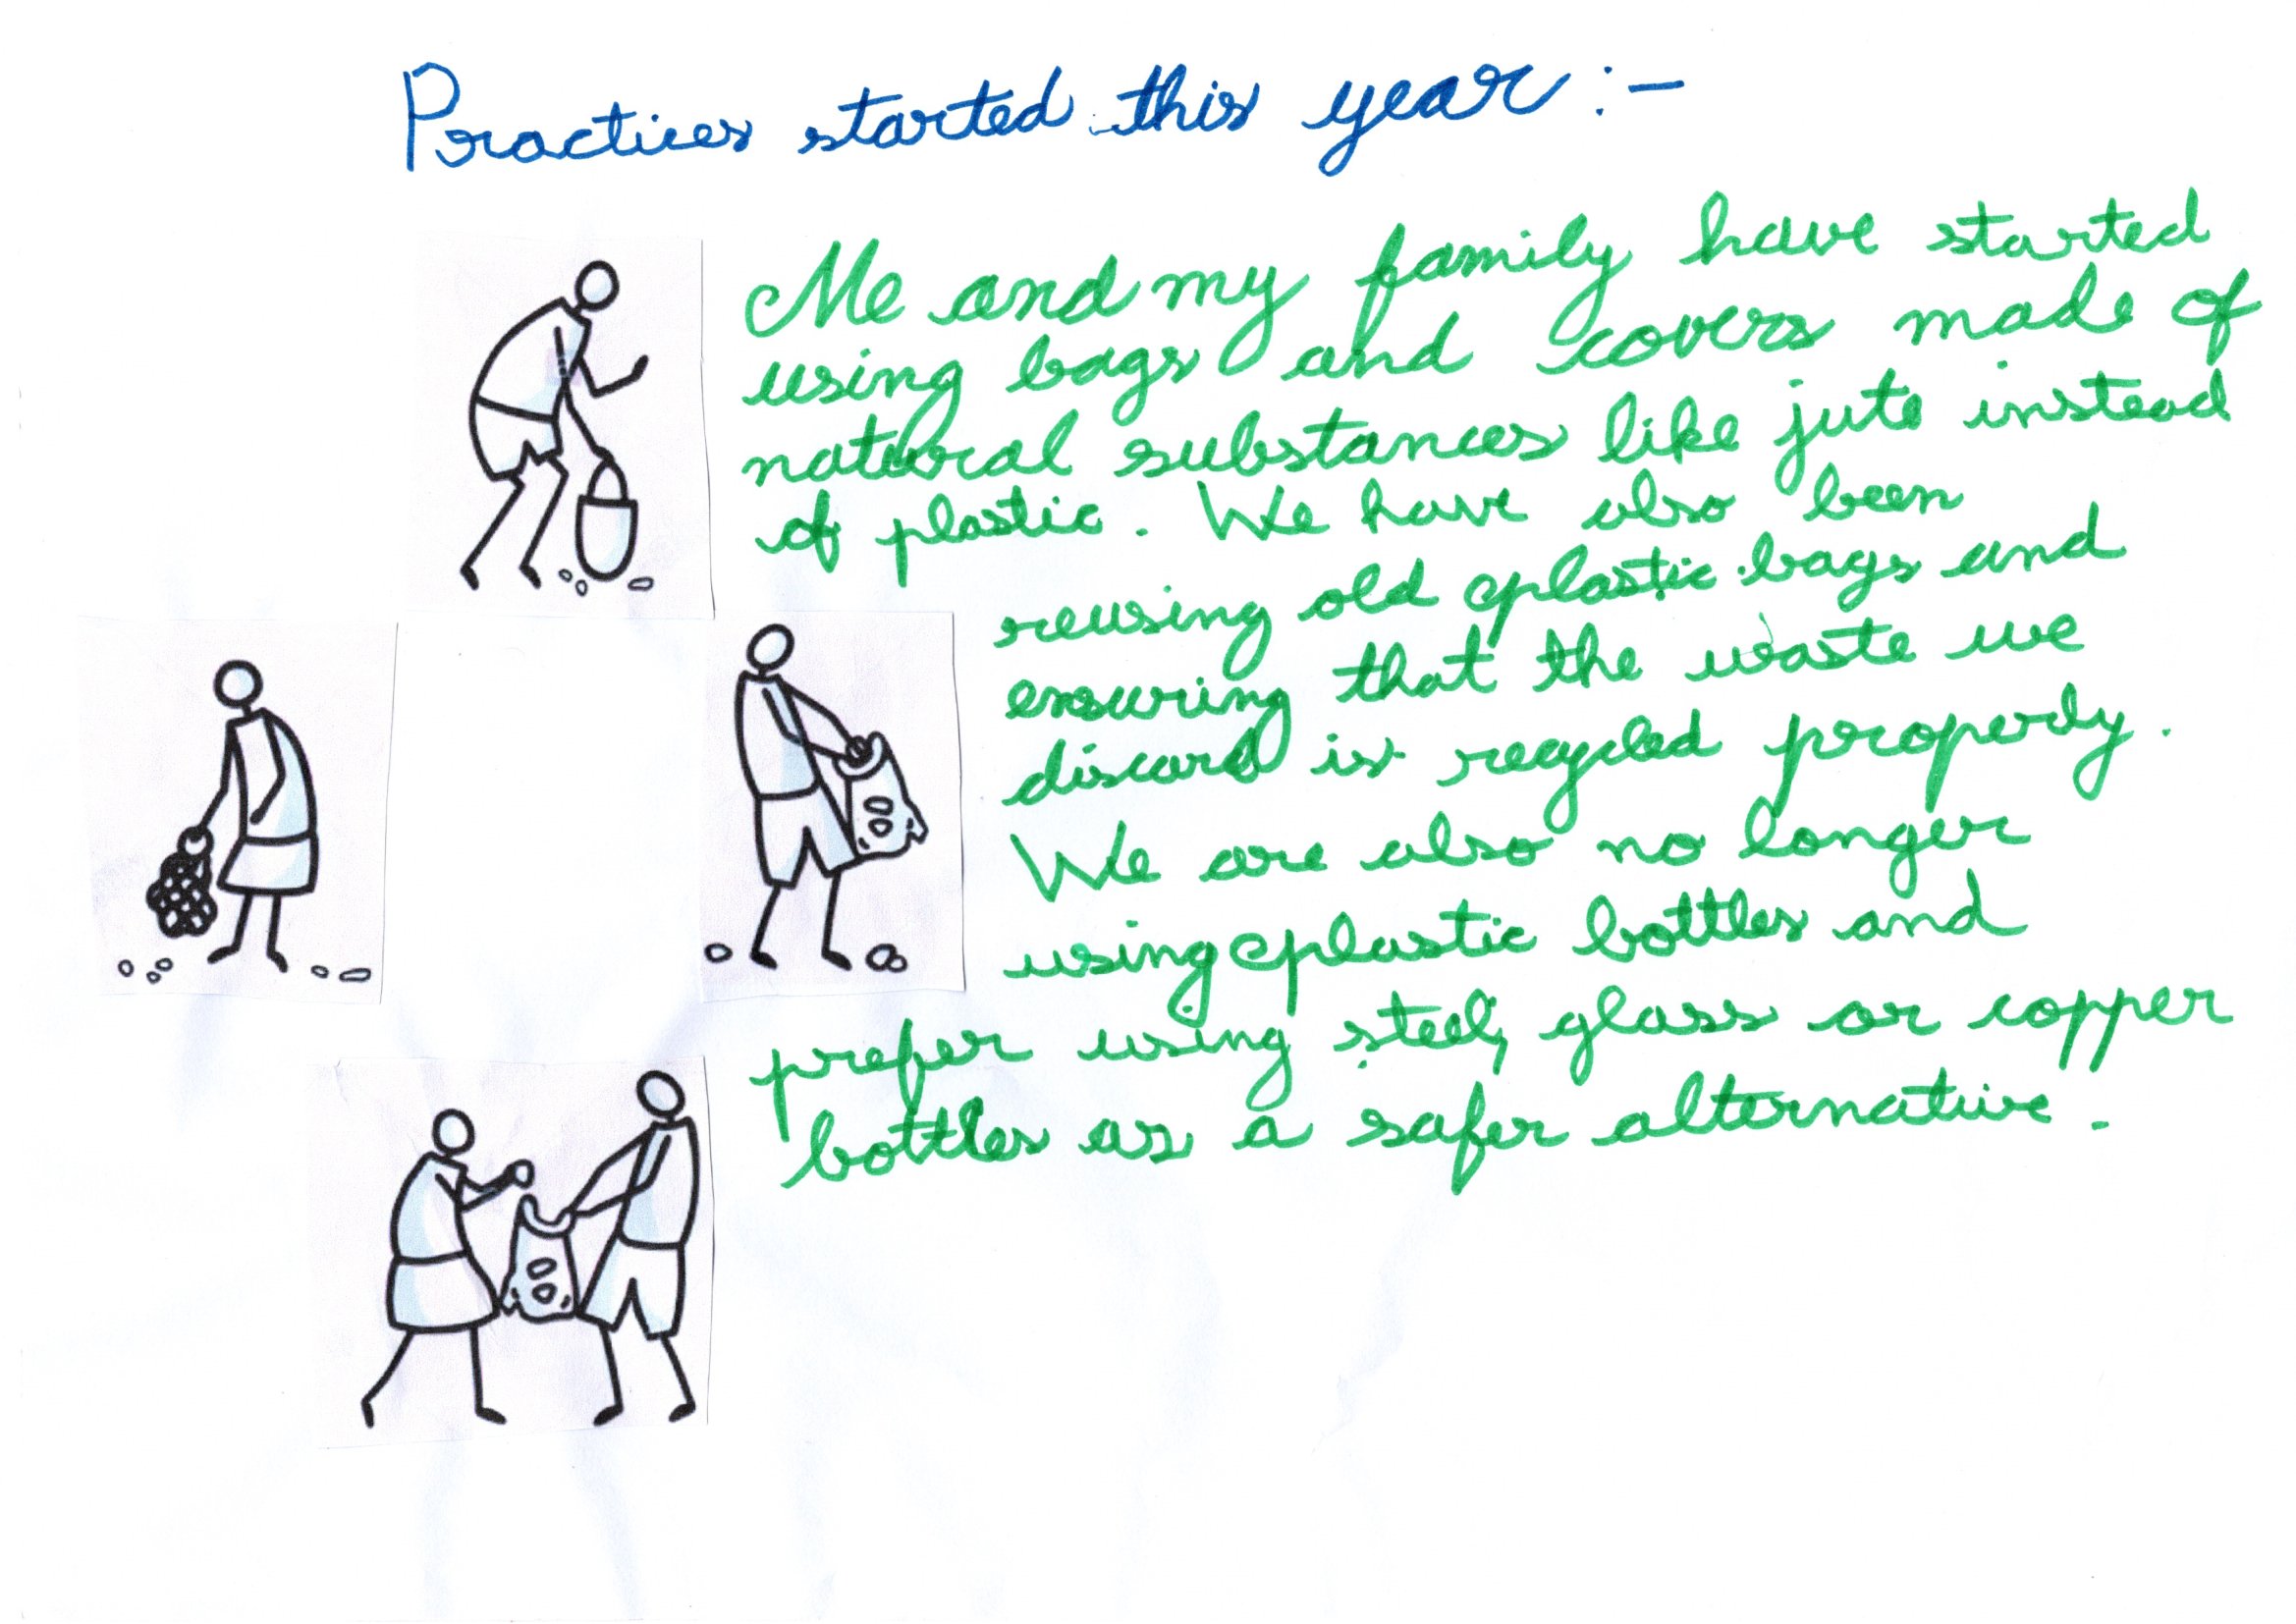 Practices started this year :-
Me and my family have started
using bags and covers made of
natural substances like jute instead
of plastic. We have also been
reusing old plastic bags and
ensuring that the waste we
discard is recycled properly.
We are also no longer
using plastic bottles and
prefer using steel, glass or copper
bottles as a safer alternative.